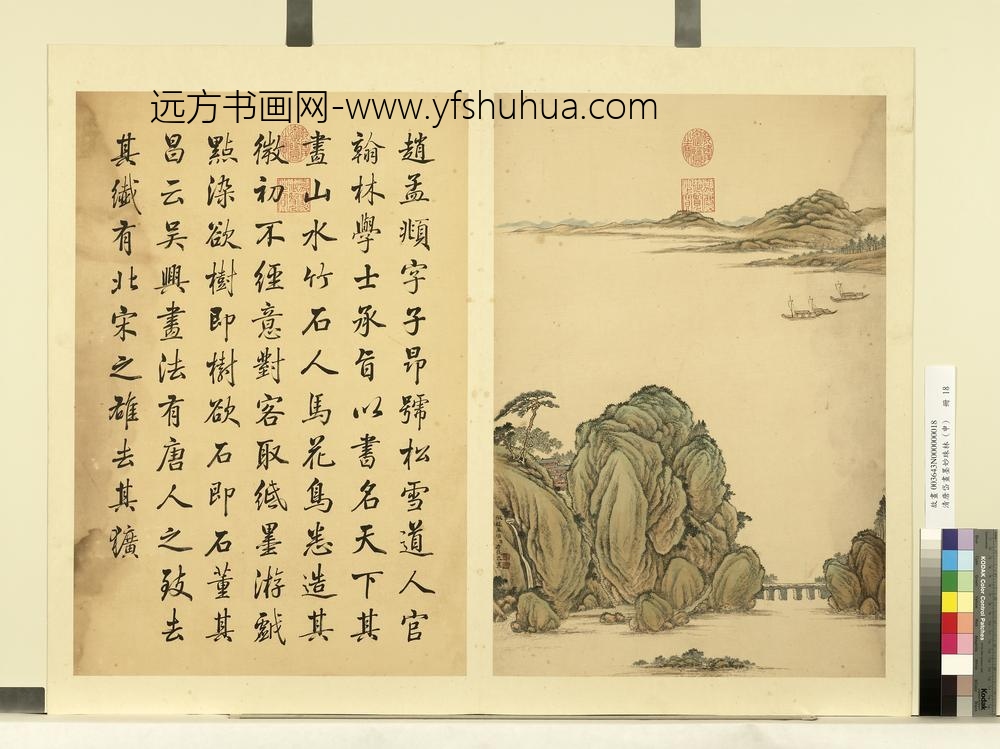 远方书画网-www.yfshuhua.com
趙孟頫字子昂號松雪道人官
翰林學士承旨以書名天下其
畫山水竹石人馬花鳥悉造其
微初不經意對客取紙墨游戲
點染欲樹即樹欲石即石董其
昌云吳興畫法有唐人之致去
其纖有北宋之雄去其獷
故畫003643N000000018
清唐岱畫墨妙珠林（申） 冊 18
KODAK Color Control Patches
Kodak